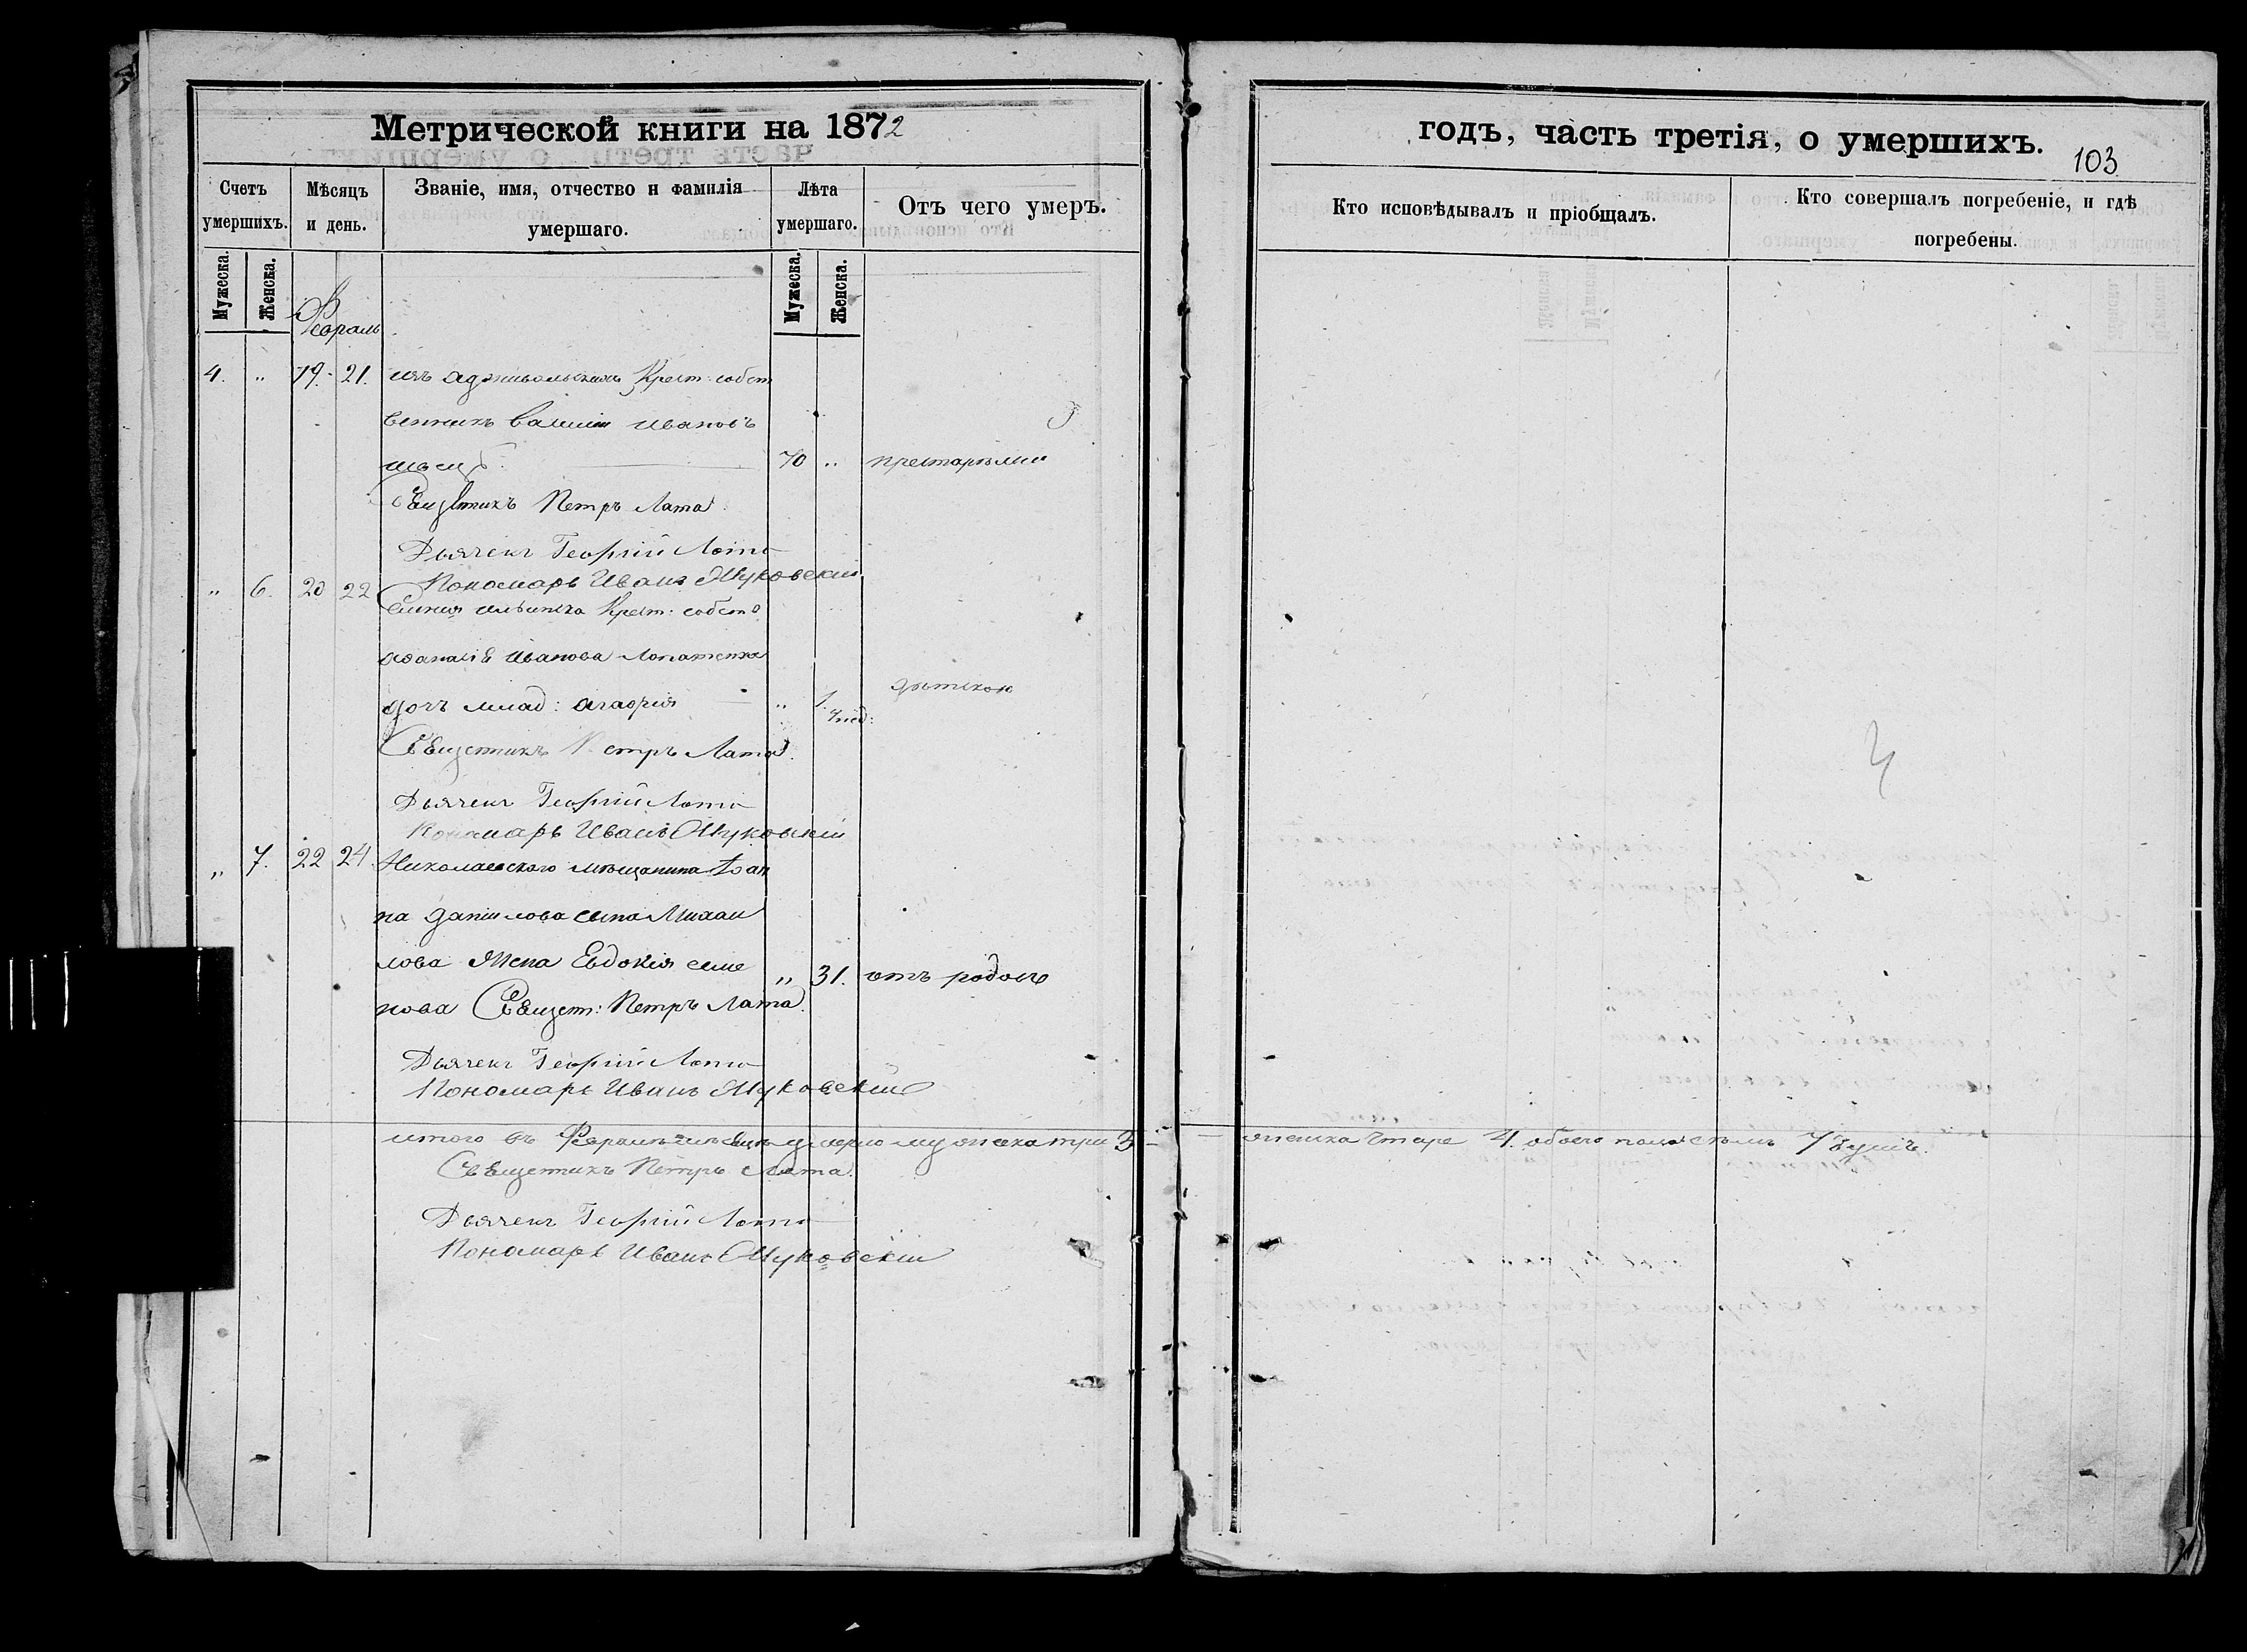 Метрической книги на 1872
годъ, часть третія, о умершихъ.
103
Счетъ умершихъ.
Мѣсяцъ и день.
Званіе, имя, отчество и фамилія умершаго.
Лѣта умершаго.
Отъ чего умеръ.
Кто исповѣдывалъ и пріобщалъ.
Кто совершалъ погребеніе, и гдѣ погребены.
Мужеска.
Женска.
Мужеска.
Женска.
Февраль
4. " 19. 21. Крест: собст
венникъ Ивановъ
70 "
Петръ Лата
Дьячекъ Георгій Лата
Пономарь Иванъ Жуковскій
" 6. 20 22 Крест: собств
Иванова
дочъ млад: Агафія " 1
Священникъ Петръ Лата
Дьячекъ Георгій Лата
Пономарь Иванъ Жуковскій
" 7. 22 24 Николаевского мѣщанина Іоан
на Данилова сына Михаи
лова жена Евдокія Семе " 31. отъ родовъ
нова Священ: Петръ Лата
Дьячекъ Георгій Лата
Пономарь Иванъ Жуковскій
итого въ Февралѣ умерло мужеска три 3 — женска 4. обоего пола семь 7 душъ.
Священникъ Петръ Лата
Дьячекъ Георгій Лата
Пономарь Иванъ Жуковскій